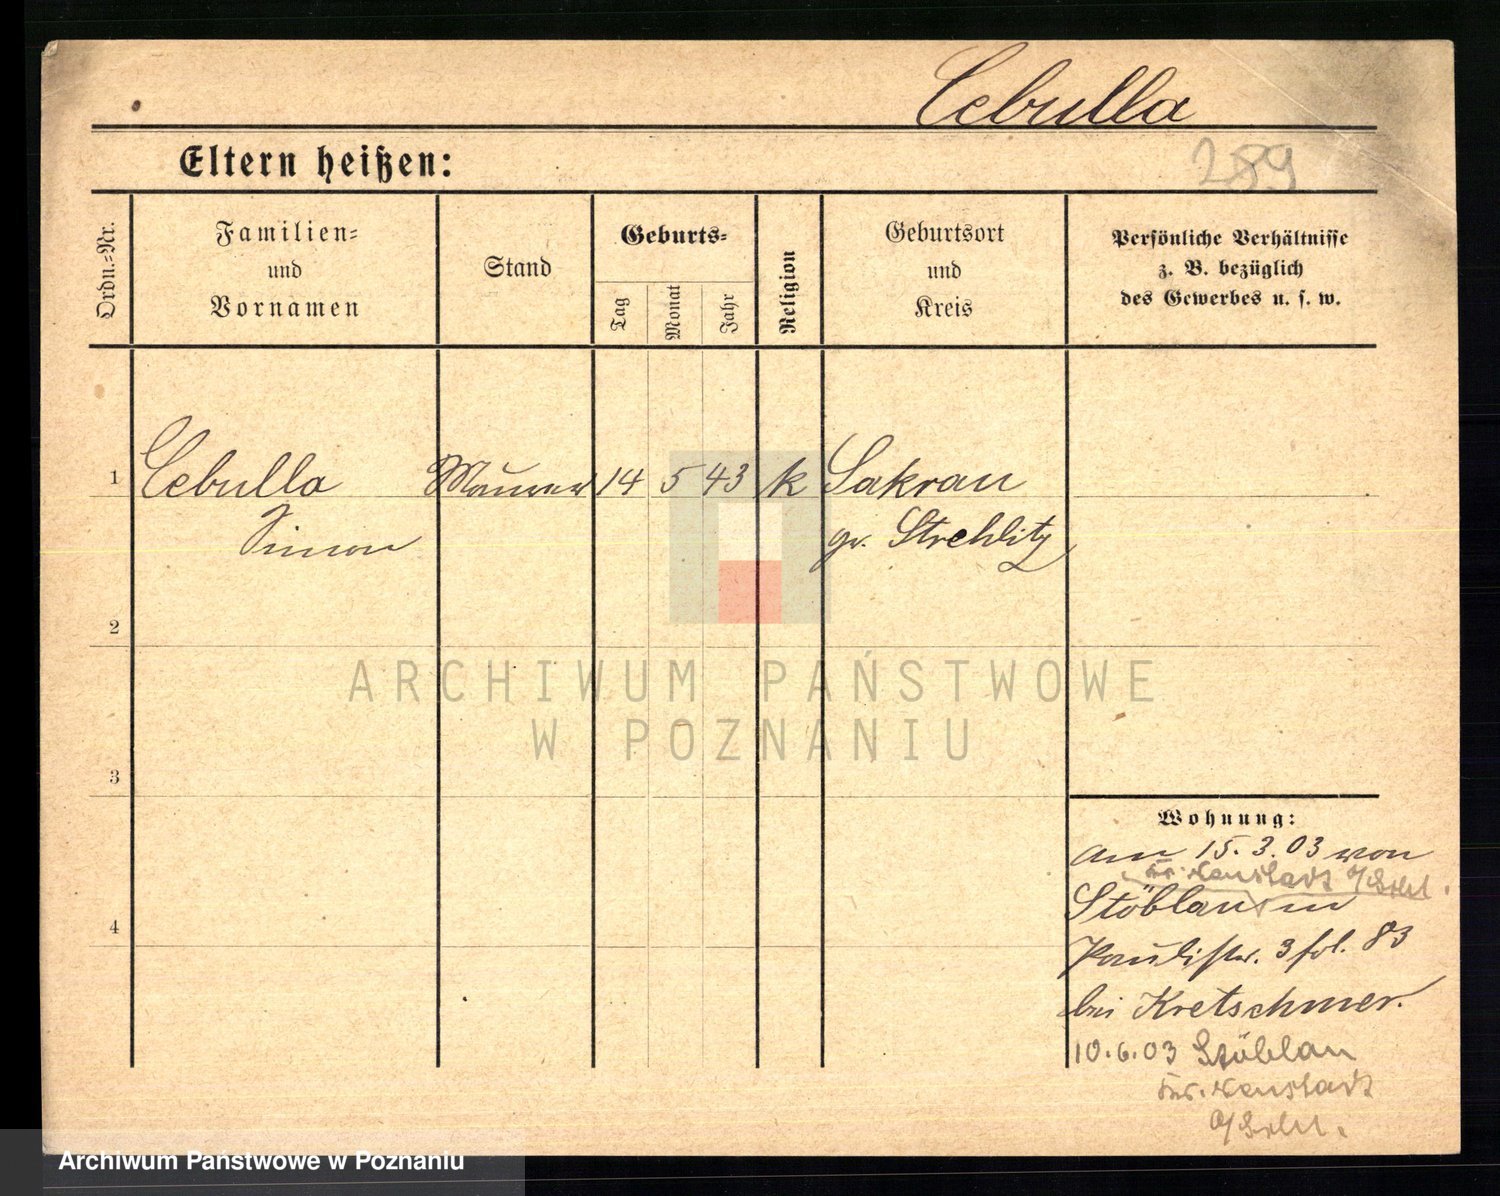 Cebulla
Eltern heißen:
289
Ordn.-Nr.
Familien-
und
Vornamen
Stand
Geburts-
Tag
Monat
Jahr
Religion
Geburtsort
und
Kreis
Persönliche Verhältnisse
z. B. bezüglich
des Gewerbes u. s. w.
1 Cebulla Maurer 14 5 43 k Sakrau
Simon gr. Strehlitz
2
3
4
ARCHIWUM PAŃSTWOWE
W POZNANIU
Wohnung:
am 15.3.03 von
Kr. Neustadt o/Schl.
Stöblau in
Paulistr. 3 fol. 83
bei Kretschmer.
10.6.03 Stöblau
Kr. Neustadt
o/Schl.
Archiwum Państwowe w Poznaniu